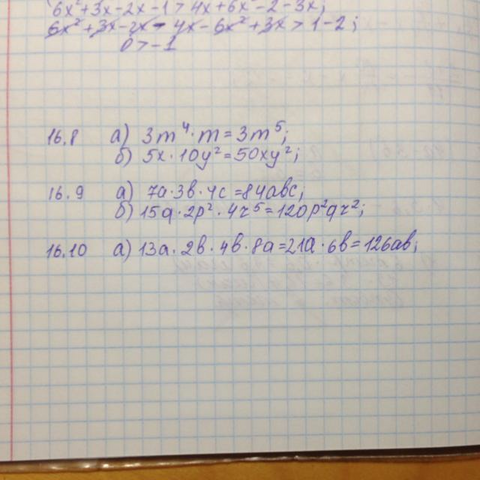 6x²+3x-2x-1>4x+6x²-2-3x;
6x²+3x-2x-4x-6x²+3x>1-2;
0>-1
16.8 а) 3m⁴·m=3m⁵;
б) 5x·10y²=50xy²;
16.9 а) 7a·3в·4c=84aвc;
б) 15q·2p²·4r⁵=120p²qr²;
16.10 а) 13a·2в·4в·8a=21a·6в=126aв;